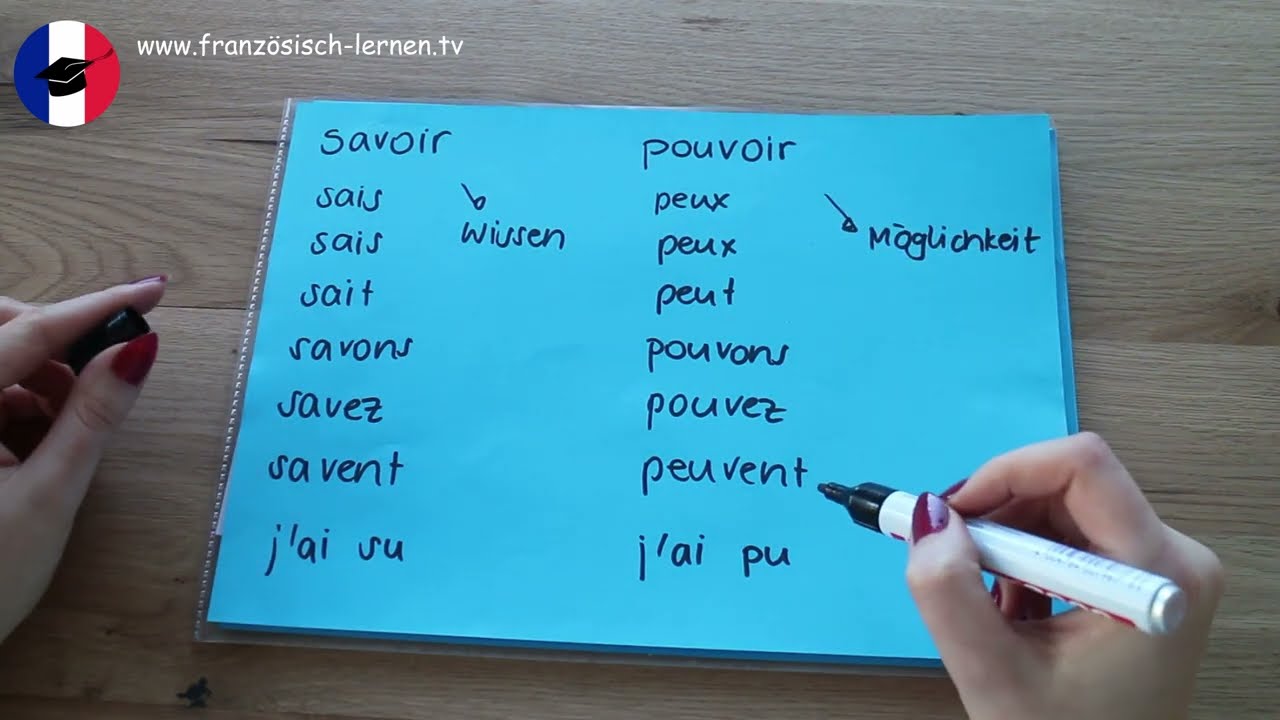 www.französisch-lernen.tv
savoir
sais
sais
wissen
sait
savons
savez
savent
j'ai su
pouvoir
peux
peux
Möglichkeit
peut
pouvons
pouvez
peuvent
j'ai pu